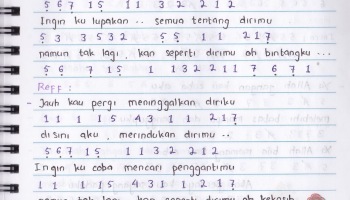 5 6 7 1 5 1 1 3 2 2 1 2
Ingin ku lupakan .. semua tentang dirimu
5 3 3 5 3 2 5 5 1 1 2 1 7
namun tak lagi, kan seperti dirimu oh bintangku ...
5 6 7 1 5 1 1 3 2 2 1 1 7 6 7 1
Reff :
- Jauh kau pergi meninggalkan diriku
1 1 1 1 5 4 3 1 1 2 1 7
disini aku, merindukan dirimu ..
5 6 7 1 5 1 1 3 2 2 1 2
Ingin ku coba mencari penggantimu
1 1 1 1 5 4 3 1 1 2 1 7
namun tak lagi kan seperti dirimu oh kekasih